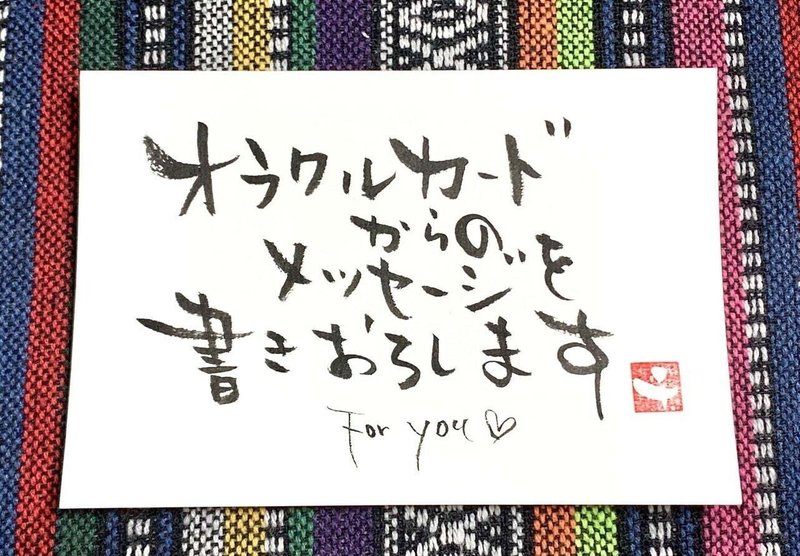 オラクルカード
からの
メッセージを
書きおろします
For you♡